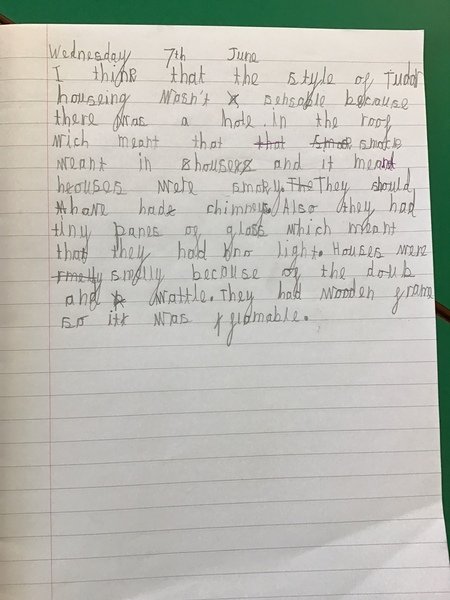 Wednesday 7th June
I think that the style of Tudor
houseing wasn't sensable because
there was a hole in the roof
wich meant that smoke
meant in houses and it meant
houses were smoky. They should
have had chimneys. Also they had
tiny panes of glass which meant
that they had no light. Houses were
smelly because of the doub
and wattle. They had wooden frame
so it was flamable.